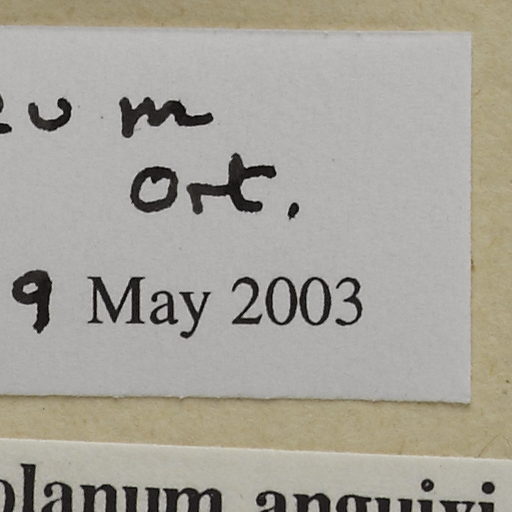 um
Ort.
9 May 2003
olanum anguivi